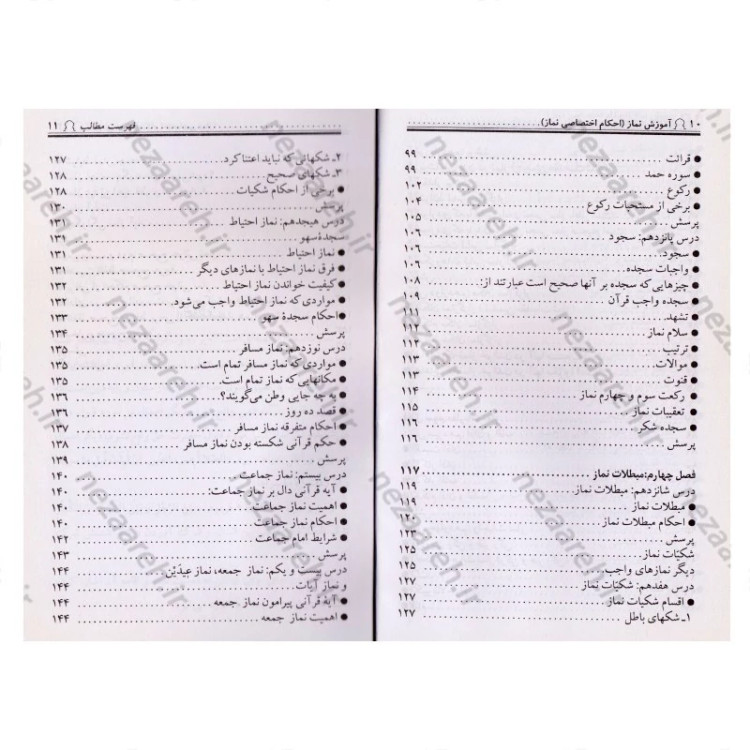 ۱۰ آموزش نماز (احکام اختصاصی نماز)
● قرائت ۹۹
● سوره حمد ۹۹
● رکوع ۱۰۲
● برخی از مستحبات رکوع ۱۰۴
پرسش ۱۰۵
درس پانزدهم: سجود ۱۰۶
● سجود ۱۰۶
● واجبات سجده ۱۰۶
● چیزهایی که سجده بر آنها صحیح است عبارتند از: ۱۰۸
● سجده واجب قرآن ۱۰۹
● تشهد ۱۱۱
● سلام نماز ۱۱۲
● ترتیب ۱۱۲
● موالات ۱۱۳
● قنوت ۱۱۳
● رکعت سوم و چهارم نماز ۱۱۴
● تعقیبات نماز ۱۱۵
● سجده شکر ۱۱۶
پرسش ۱۱۶
فصل چهارم: مبطلات نماز ۱۱۷
درس شانزدهم: مبطلات نماز ۱۱۹
● مبطلات نماز ۱۱۹
● احکام مبطلات نماز ۱۲۰
پرسش ۱۲۳
شکیّات نماز ۱۲۵
دیگر نمازهای واجب ۱۲۵
درس هفدهم: شکیّات نماز ۱۲۷
● اقسام شکیات نماز ۱۲۷
۱ـ شکهای باطل ۱۲۷
فهرست مطالب ۱۱
۲ـ شکهائی که نباید اعتنا کرد ۱۲۷
۳ـ شکهای صحیح ۱۲۸
● برخی از احکام شکیات ۱۲۸
پرسش ۱۳۰
درس هیجدهم: نماز احتیاط ۱۳۱
سجدهٔ سهو ۱۳۱
● نماز احتیاط ۱۳۱
● فرق نماز احتیاط با نمازهای دیگر ۱۳۱
● کیفیت خواندن نماز احتیاط ۱۳۲
● مواردی که نماز احتیاط واجب می‌شود. ۱۳۲
● احکام سجدهٔ سهو ۱۳۳
پرسش ۱۳۴
درس نوزدهم: نماز مسافر ۱۳۵
● مواردی که نماز مسافر تمام است. ۱۳۵
● مکانهایی که نماز تمام است. ۱۳۵
● به چه جایی وطن می‌گویند؟ ۱۳۶
● قصد ده روز ۱۳۶
● احکام متفرقه نماز مسافر ۱۳۷
● حکم قرآنی شکسته بودن نماز مسافر ۱۳۸
پرسش ۱۳۹
درس بیستم: نماز جماعت ۱۴۰
● آیه قرآنی دال بر نماز جماعت: ۱۴۰
● اهمیت نماز جماعت ۱۴۰
● احکام نماز جماعت ۱۴۰
● شرایط امام جماعت ۱۴۲
پرسش ۱۴۳
درس بیست و یکم: نماز جمعه، نماز عیدَیْن
و نماز آیات ۱۴۴
● آیهٔ قرآنی پیرامون نماز جمعه ۱۴۴
● اهمیت نماز جمعه ۱۴۴
nezaareh.ir